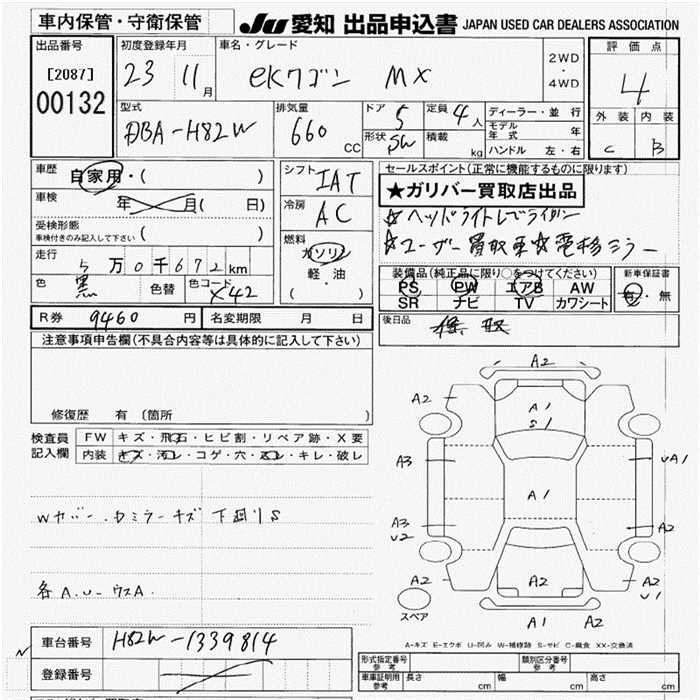 車内保管・守衛保管
JU 愛知 出品申込書 JAPAN USED CAR DEALERS ASSOCIATION
出品番号
[2087]
00132
初度登録年月
23 11月
車名・グレード
eKワゴン MX
2WD
・
4WD
評価点
4
外装 内装
C B
型式
DBA-H82W
排気量
660 CC
ドア 5
定員 4人
形状 SW
積載 kg
ディーラー・並行
モデル年式 年
ハンドル 左・右
車歴
自家用・( )
車検
年 月( 日)
受検形態
車検付きのみ記入して下さい ( )
走行
5万0千672km
色 黒 色替 色コード X42
シフト IAT
冷房 AC
燃料
ガソリン
軽・油
( )
セールスポイント(正常に機能するものに限ります)
★ガリバー買取店出品
☆ヘッドライトレベライザー
☆ユーザー買取車☆電格ミラー
装備品(純正品に限り○をつけてください)
PS PW エアB AW
SR ナビ TV カワシート
新車保証書
有・無
後日品
R券 9460円
名変期限 月 日
注意事項申告欄(不具合内容等は具体的に記入して下さい)
修復歴 有 〔箇所 〕
検査員
記入欄
FW キズ・飛石・ヒビ割・リペア跡・X要
内装 キズ・汚レ・コゲ・穴・スレ・キレ・破レ
Wカバー・ドミラーキズ 下廻りS
各A.U-ウスA.
A2
A2
A1
S1
A2
A3
UA1
A1
A3
U2
A2
A2
A2
A2
U1
スペア
A1 A2
A-キズ E-エクボ U-凹み W-補修跡 S-サビ C-腐食 XX-交換済
N
車台番号 H82W-1339814
登録番号
形式指定番号
参考
類別区分番号
参考
車庫証明用
参考
長さ cm
幅 cm
高さ cm